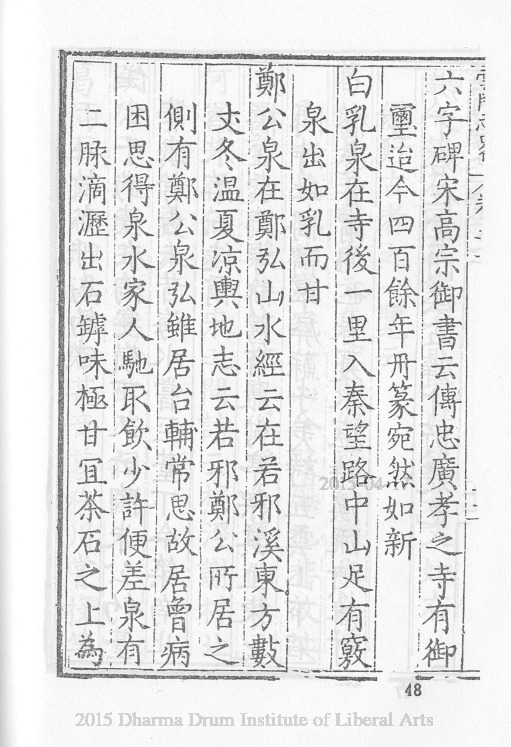 六字碑宋高宗御書云傳忠廣孝之寺有御
璽迨今四百餘年冊篆宛然如新
白乳泉在寺後一里入秦望路中山足有竅
泉出如乳而甘
鄭公泉在鄭弘山水經云在若邪溪東方數
丈冬温夏凉輿地志云若邪鄭公所居之
側有鄭公泉弘雖居台輔常思故居曾病
困思得泉水家人馳取飲少許便差泉有
二脉滴瀝出石罅味極甘冝茶石之上為
48
2015 Dharma Drum Institute of Liberal Arts